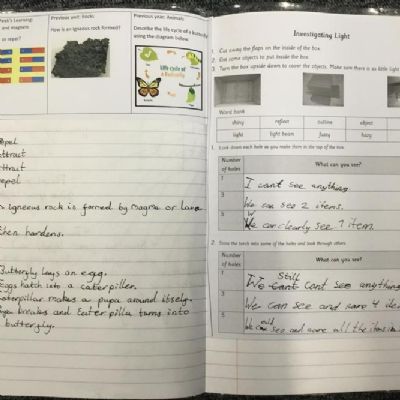 Past's Learning:
and magnets
or repel?
Previous unit: Rocks:
How is an igneous rock formed?
Previous year: Animals:
Describe the life cycle of a butterfly
using the diagram below.
life cycle of
a Butterfly
repel
attract
attract
repel
igneous rock is formed by magma or lava
then hardens.
Butterfly lays an egg.
Eggs hatch into a caterpillar.
caterpillar makes a pupa around itself.
breakes and turns into
butterfly.
Investigating Light
1. Cut away the flaps on the inside of the box.
2. Put some objects to put inside the box.
3. Turn the box upside down to cover the objects. Make sure there is as little light
Word bank
shiny reflect outline object
light light beam fuzzy hazy
1. Look down each hole as you make them in the top of the box.
Number of holes What can you see?
1 I cant see anything.
3 We can see 2 items.
5 We can clearly see 1 item.
2. Shine the torch into some of the holes and look through others.
Number of holes What can you see?
1 We still cant see anything
3 We can see and name 4
5 We could see and name all the items